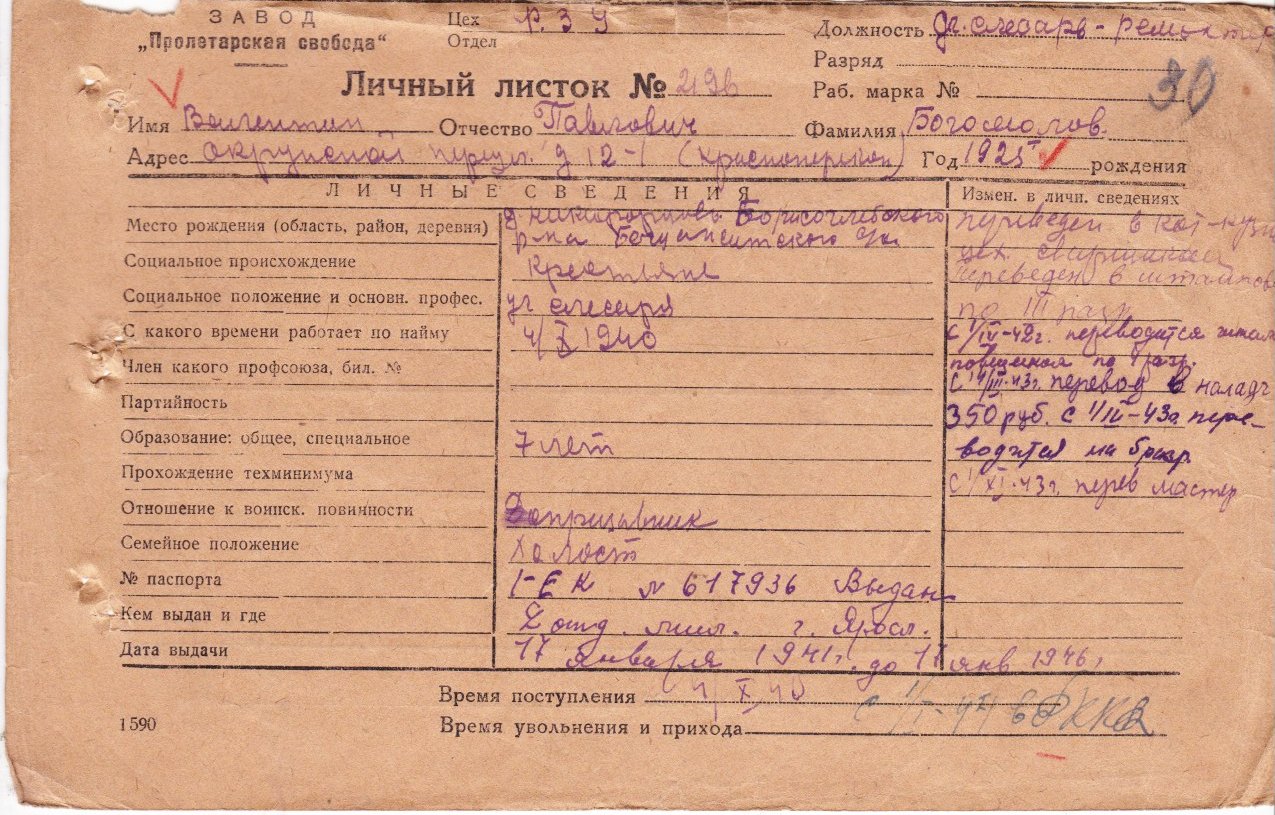 ЗАВОД
„Пролетарская свобода“
Цех Р.З У
Отдел
Должность уч. слесарь - ремонтер
Разряд
Личный листок №
Раб. марка №
Имя Валентин Отчество Павлович Фамилия Богомолов
Адрес д 12-1 (Красноперекоп) Год 1925 рождения
ЛИЧНЫЕ СВЕДЕНИЯ
Измен. в личн. сведениях
Место рождения (область, район, деревня) Борисоглебского
р-на
переведен в кот-
цех
Социальное происхождение крестьяне
переведен в
Социальное положение и основн. профес. уч слесаря
по III разр
С какого времени работает по найму 4/X 1940
с 1/IV-42г. переводится
по разр.
Член какого профсоюза, бил. №
перевод в наладч
Партийность
350 руб. с пере-
Образование: общее, специальное 7 лет
водится на бригад.
Прохождение техминимума
с 1/XI-43г. перев мастер
Отношение к воинск. повинности Допризывник
Семейное положение Холост
№ паспорта I-ЕК № 617936 Выдан
Кем выдан и где 2 отд. мил. г. Яросл.
Дата выдачи 17 января 1941г. до 17 янв 1946г
Время поступления 4/X 40
1590
Время увольнения и прихода в РККА